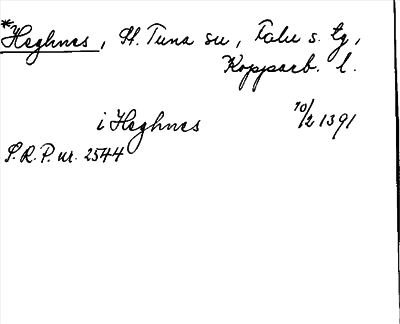 *Heghnes, St. Tuna sn, Falu s. tg,
Kopparb. l.
i Heghnes 10/2 1391
S.R.P. nr. 2544